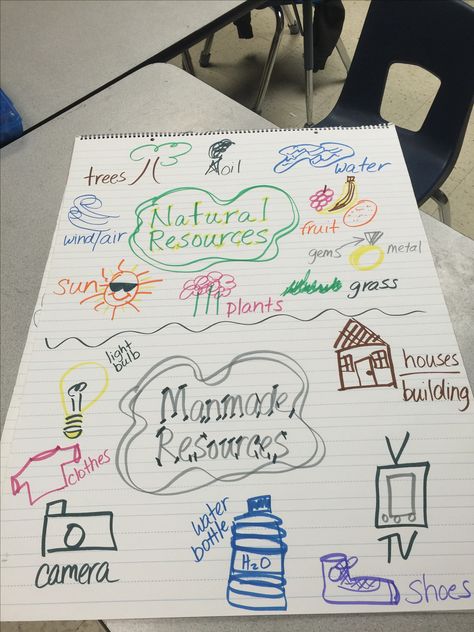 trees
oil
water
Natural
Resources
wind/air
fruit
gems
metal
sun
plants
grass
light
bulb
Manmade
Resources
houses
building
clothes
water
bottle
H₂O
camera
TV
shoes